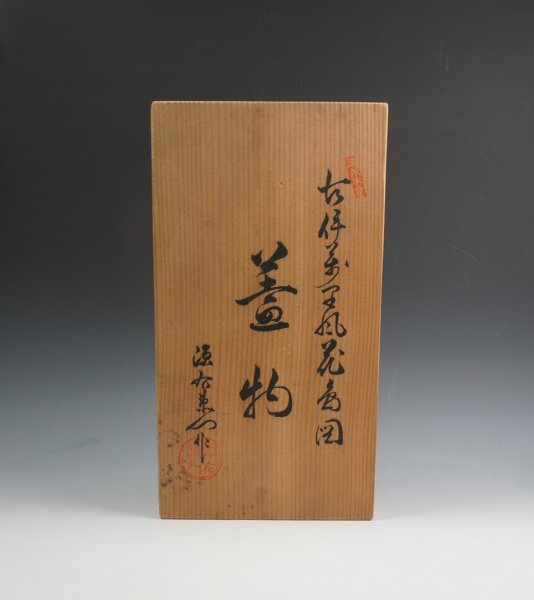 古伊万里風花鳥図
蓋物
源右衛門作